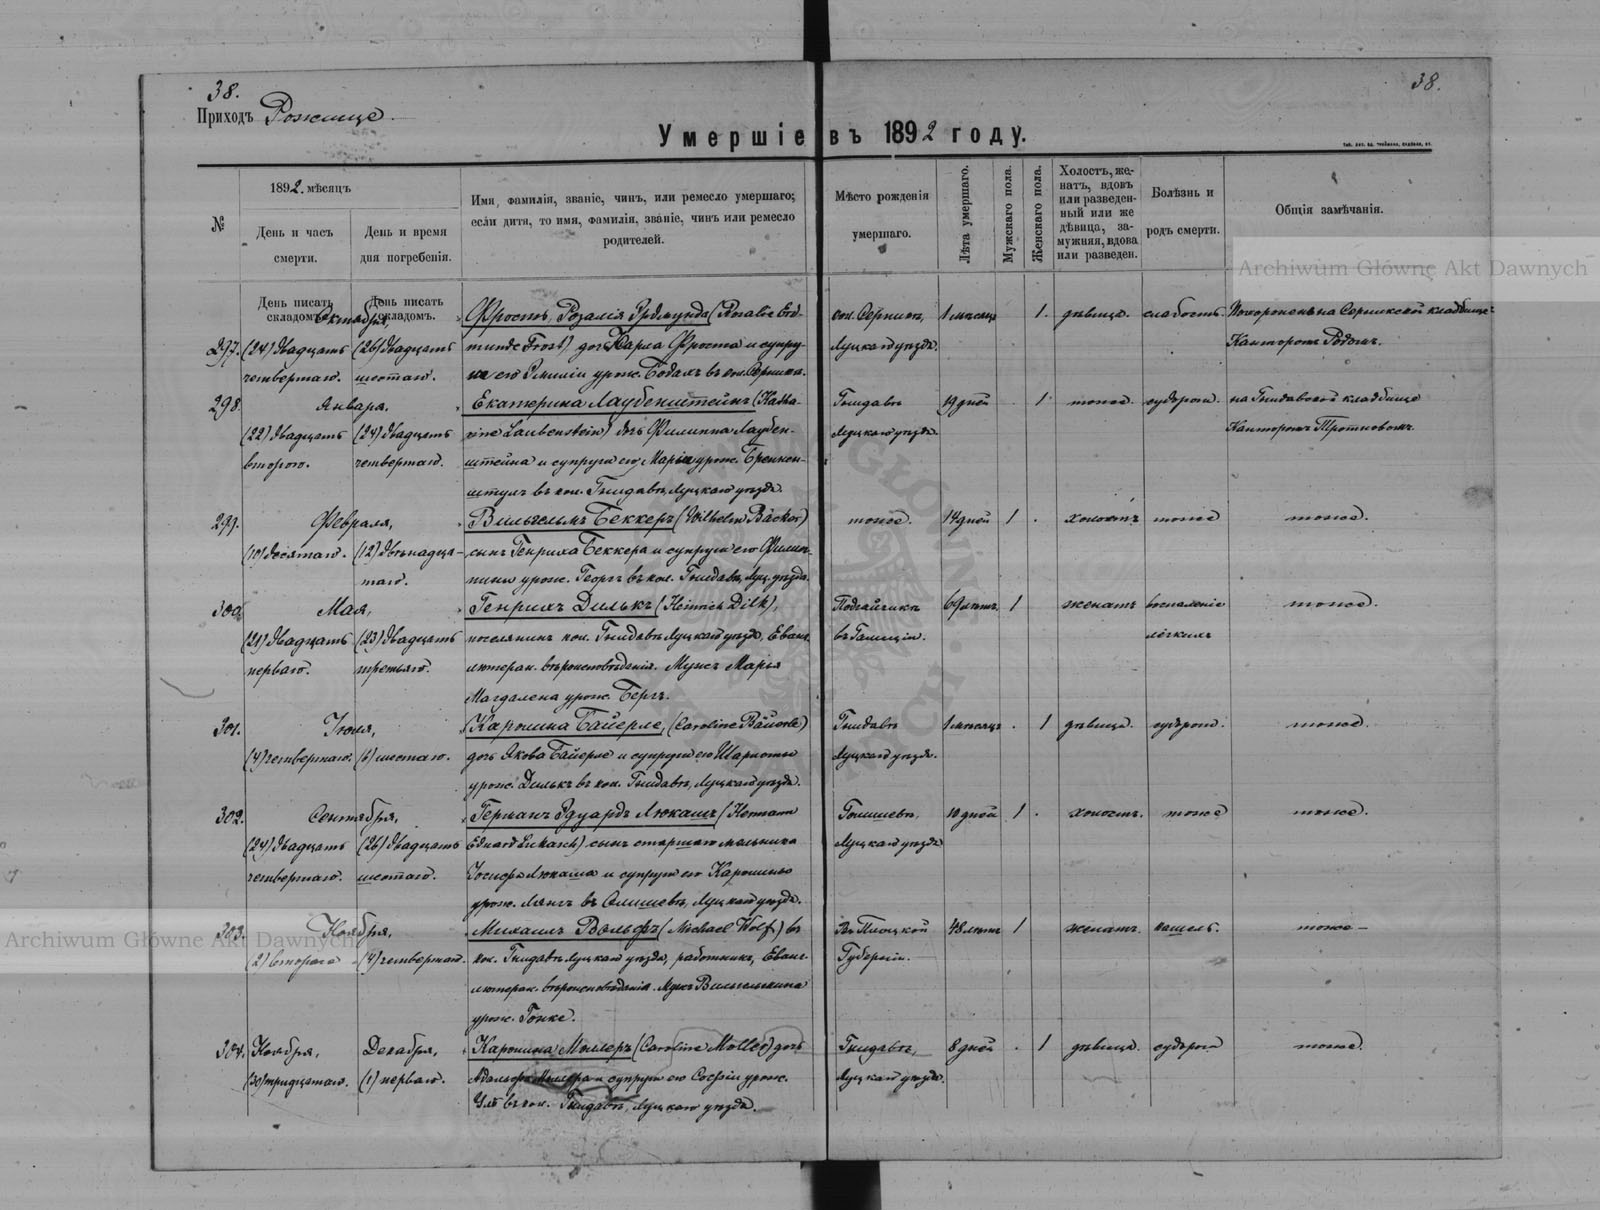 38.
38.
Приходъ Рожище.
Умершіе въ 1892 году.
№
1892 мѣсяцъ
День и часъ смерти.
День и время дня погребенія.
Имя, фамилія, званіе, чинъ, или ремесло умершаго;
если дитя, то имя, фамилія, званіе, чинъ или ремесло
родителей.
Мѣсто рожденія
умершаго.
Лѣта умершаго.
Мужскаго пола.
Женскаго пола.
Холостъ, же-
натъ, вдовъ
или разведен-
ный или же
дѣвица, за-
мужняя, вдова
или разведен.
Болѣзнь и
родъ смерти.
Общія замѣчанія.
Archiwum Główne Akt Dawnych
День писать складомъ.
День писать складомъ.
Октября,
297. (24) двадцать четвертаго. (26) двадцать шестаго.
Фростъ, Розалія Эдмунда (Rosalie Ed-
munde Frost) дочь Карла Фроста и супру-
ги его Эмиліи урож. въ кол. Серники.
кол. Серники, Луцкаго уѣзда.
1 мѣсяцъ
1.
дѣвица.
слабость.
Похороненъ на Серникской кладбище
Канторомъ
298. Января,
(22) двадцать второго. (24) двадцать четвертаго.
Екатерина Лаубенштейнъ (Katha-
rine Laubenstein) дочь Филиппа Лаубен-
штейна и супруги его Маріи урож.
въ кол. Гнидавѣ, Луцкаго уѣзда.
Гнидавѣ Луцкаго уѣзда.
19 дней
1
тоже.
судорги.
на Гнидавской кладбище
Канторомъ
299. Февраля,
(10) десятаго. (12) двѣнадца-
таго.
Вильгельмъ Беккеръ (Wilhelm Bäcker)
сынъ Генриха Беккера и супруги его Филип-
пины урож. Георгъ въ кол. Гнидавѣ, Луц. уѣзда.
тоже.
14 дней
1
холостъ
тоже
тоже.
300. Мая,
(21) двадцать перваго. (23) двадцать третьяго.
Генрихъ Дилькъ (Heinrich Dilk),
поселянинъ кол. Гнидавѣ Луцкаго уѣзда, Еванг.
лютеран. вѣроисповѣданія. Мужъ Марья
Магдалена урож. Бергъ.
въ Галиціи.
69 лѣтъ
1
женатъ
воспаленіе лёгкихъ
тоже.
301. Іюня,
(4) четвертаго. (6) шестаго.
Каролина Байерле, (Caroline Bäuerle)
дочь Якова Байерле и супруги его Шарлоты
урож. Дилькъ въ кол. Гнидавѣ, Луцкаго уѣзда.
Гнидавѣ Луцкаго уѣзда.
1 мѣсяцъ
1
дѣвица.
судорги.
тоже.
302. Сентября,
(24) двадцать четвертаго. (26) двадцать шестаго.
Германъ Эдуардъ Люкашъ (Hermann
Eduard Lukasch) сынъ старшаго мельника
Іосифа Люкаша и супруги его Каролины
урож. Лянгъ въ Луцкаго уѣзда.
Луцкаго уѣзда
10 дней
1
холостъ.
тоже
тоже.
303. Ноября,
(2) второго (4) четвертаго.
Михаилъ Вольфъ (Michael Wolf) въ
кол. Гнидавѣ Луцкаго уѣзда, работникъ, Еванг.
лютеран. вѣроисповѣданія. Мужъ Вильгельмина
урож. Гонке.
Въ Плоцкой Губерніи.
48 лѣтъ
1
женатъ.
кашель.
тоже
Archiwum Główne Akt Dawnych
304. Ноября, Декабря,
(30) тридцатаго. (1) перваго.
Каролина Миллеръ (Caroline Müller) дочь
Адольфа Миллера и супруги его Софіи урож.
въ кол. Гнидавѣ, Луцкаго уѣзда.
Гнидавѣ, Луцкаго уѣзда.
8 дней
1
дѣвица.
судорги
тоже.